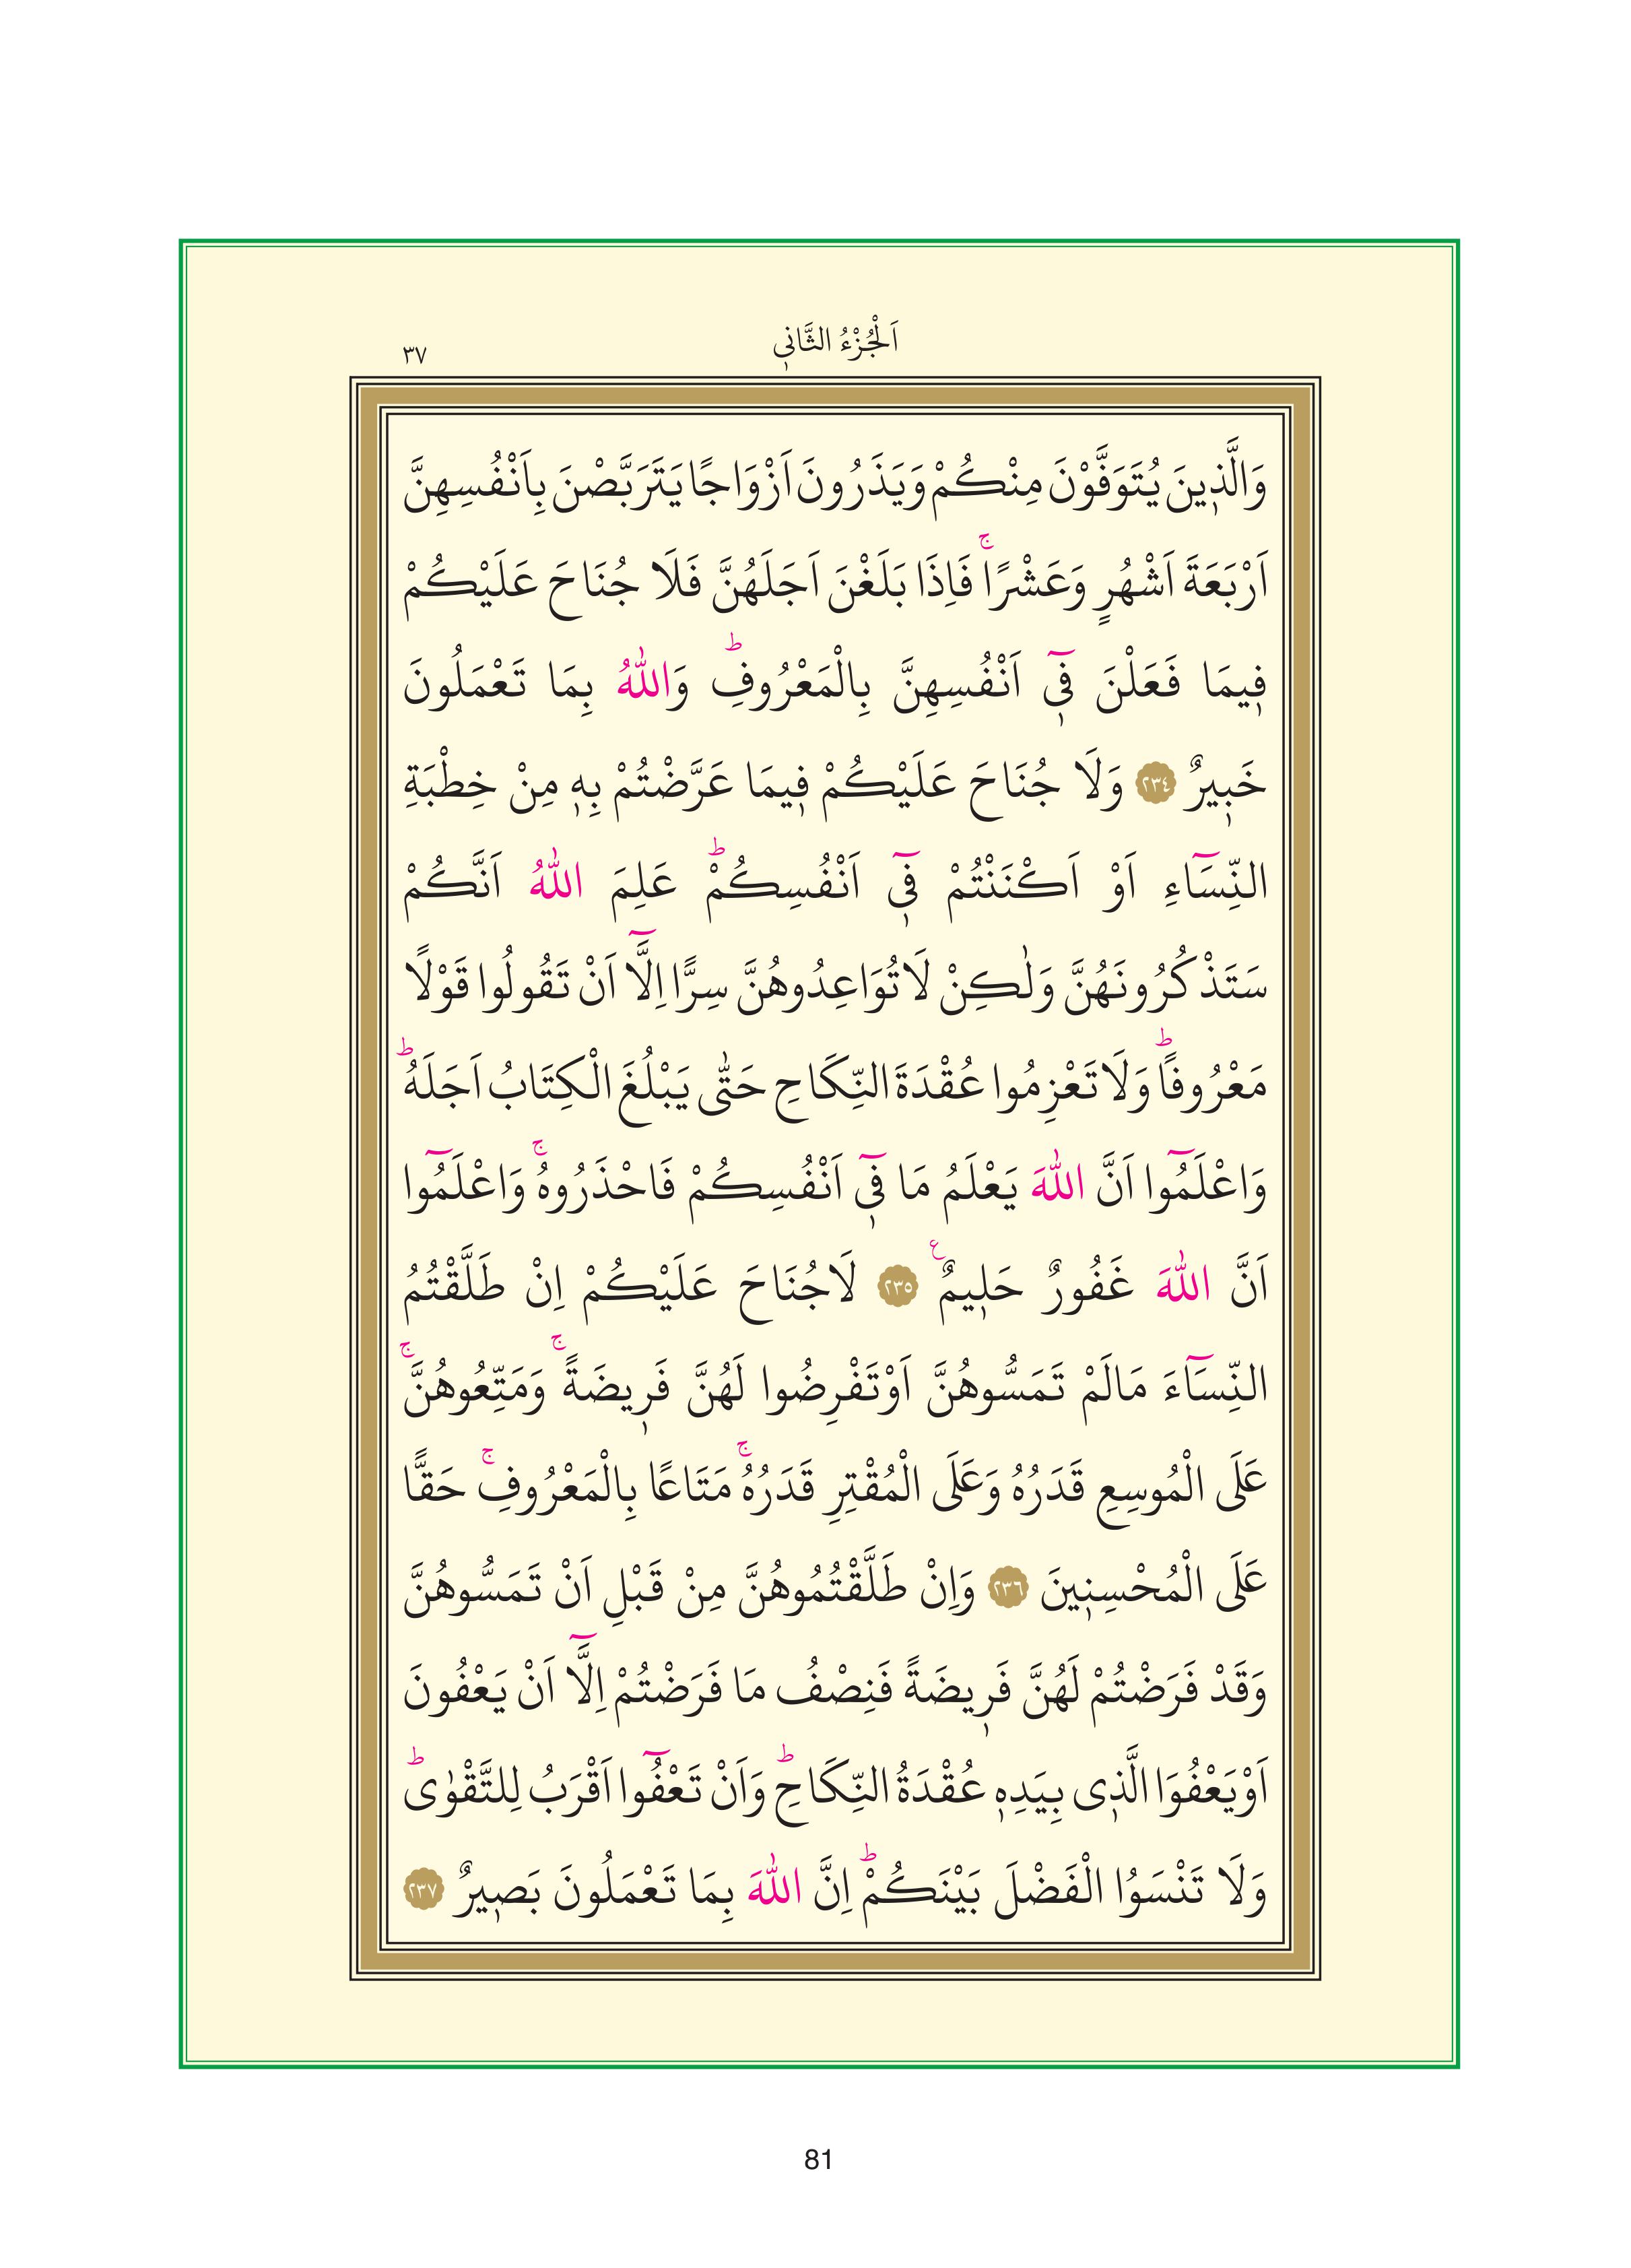 اَلْجُزْءُ الثَّانٖي
٣٧
وَالَّذٖينَ يُتَوَفَّوْنَ مِنْكُمْ وَيَذَرُونَ اَزْوَاجًا يَتَرَبَّصْنَ بِاَنْفُسِهِنَّ
اَرْبَعَةَ اَشْهُرٍ وَعَشْرًاۚ فَاِذَا بَلَغْنَ اَجَلَهُنَّ فَلَا جُنَاحَ عَلَيْكُمْ
فٖيمَا فَعَلْنَ فٖٓي اَنْفُسِهِنَّ بِالْمَعْرُوفِؕ وَاللّٰهُ بِمَا تَعْمَلُونَ
خَبٖيرٌ ﴿٢٣٤﴾ وَلَا جُنَاحَ عَلَيْكُمْ فٖيمَا عَرَّضْتُمْ بِهٖ مِنْ خِطْبَةِ
النِّسَٓاءِ اَوْ اَكْنَنْتُمْ فٖٓي اَنْفُسِكُمْؕ عَلِمَ اللّٰهُ اَنَّكُمْ
سَتَذْكُرُونَهُنَّ وَلٰكِنْ لَا تُوَاعِدُوهُنَّ سِرًّا اِلَّٓا اَنْ تَقُولُوا قَوْلًا
مَعْرُوفًاؕ وَلَا تَعْزِمُوا عُقْدَةَ النِّكَاحِ حَتّٰى يَبْلُغَ الْكِتَابُ اَجَلَهُؕ
وَاعْلَمُٓوا اَنَّ اللّٰهَ يَعْلَمُ مَا فٖٓي اَنْفُسِكُمْ فَاحْذَرُوهُۚ وَاعْلَمُٓوا
اَنَّ اللّٰهَ غَفُورٌ حَلٖيمٌࣖ ﴿٢٣٥﴾ لَا جُنَاحَ عَلَيْكُمْ اِنْ طَلَّقْتُمُ
النِّسَٓاءَ مَالَمْ تَمَسُّوهُنَّ اَوْ تَفْرِضُوا لَهُنَّ فَرٖيضَةًۚ وَمَتِّعُوهُنَّۚ
عَلَى الْمُوسِعِ قَدَرُهُ وَعَلَى الْمُقْتِرِ قَدَرُهُۚ مَتَاعًا بِالْمَعْرُوفِۚ حَقًّا
عَلَى الْمُحْسِنٖينَ ﴿٢٣٦﴾ وَاِنْ طَلَّقْتُمُوهُنَّ مِنْ قَبْلِ اَنْ تَمَسُّوهُنَّ
وَقَدْ فَرَضْتُمْ لَهُنَّ فَرٖيضَةً فَنِصْفُ مَا فَرَضْتُمْ اِلَّٓا اَنْ يَعْفُونَ
اَوْ يَعْفُوَا الَّذٖى بِيَدِهٖ عُقْدَةُ النِّكَاحِؕ وَاَنْ تَعْفُٓوا اَقْرَبُ لِلتَّقْوٰىؕ
وَلَا تَنْسَوُا الْفَضْلَ بَيْنَكُمْؕ اِنَّ اللّٰهَ بِمَا تَعْمَلُونَ بَصٖيرٌ ﴿٢٣٧﴾
81